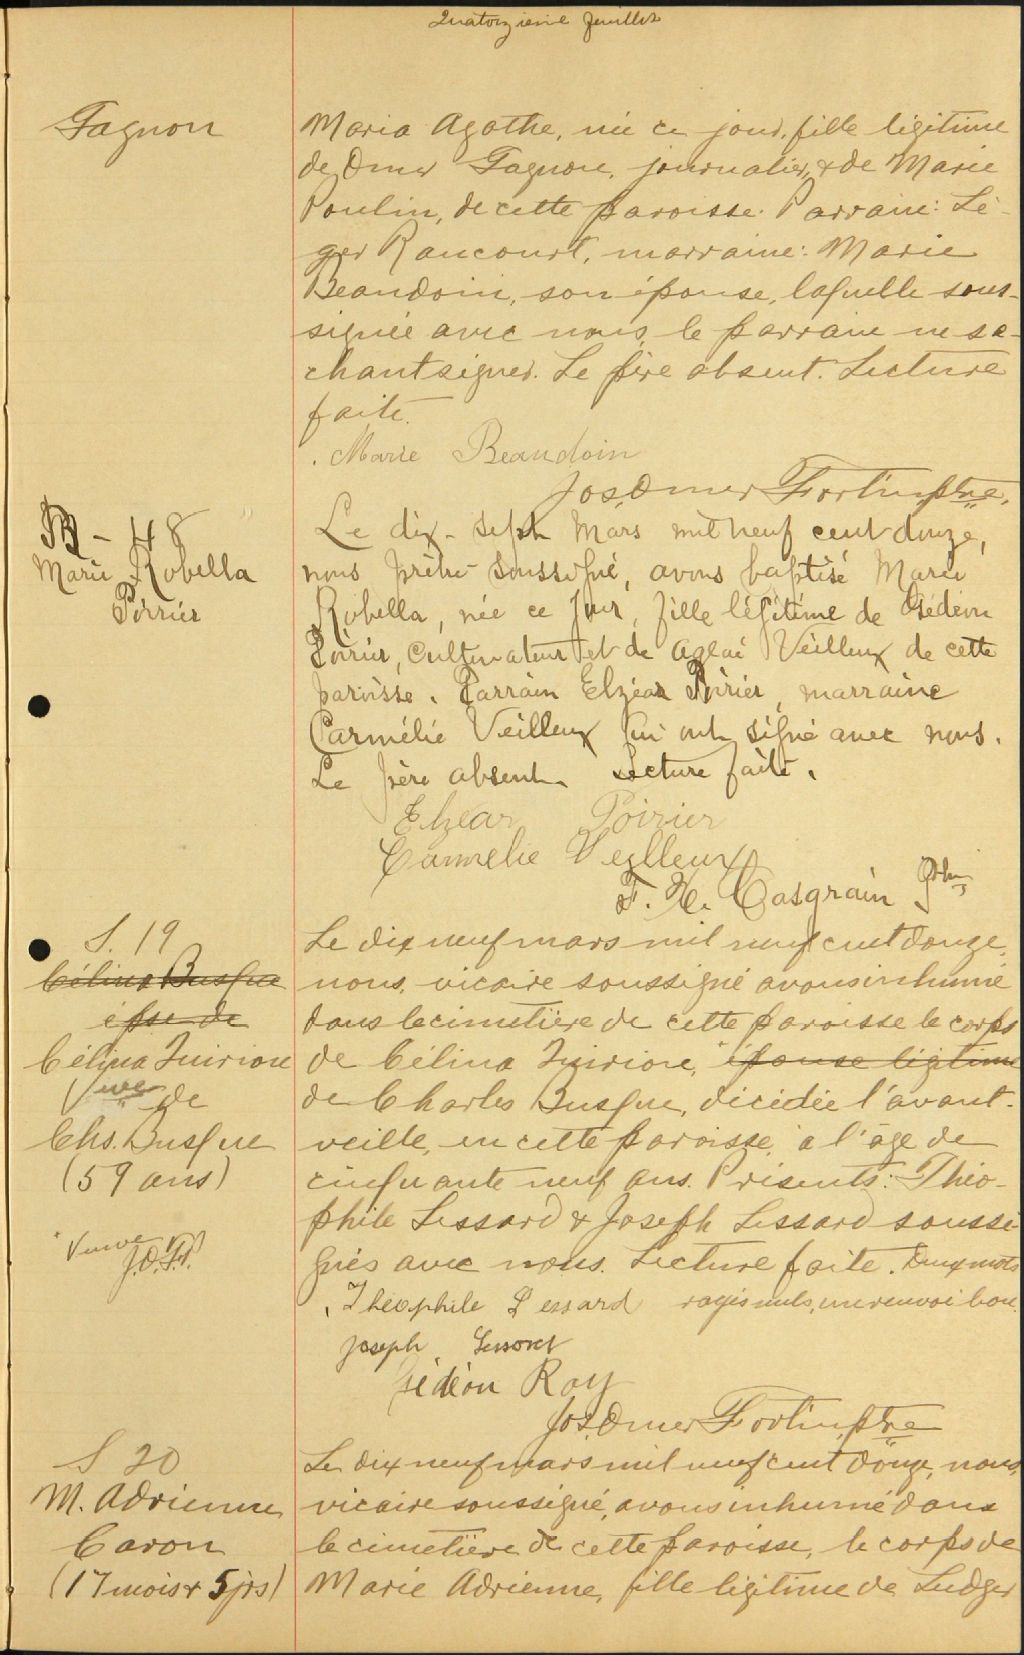 Quatorzieme feuillet
Fagnon
Maria Agathe, née ce jour, fille légitime
de Omer Fagnon, journalier, & de Marie
Poulin, de cette paroisse. Parrain: Lé-
ger Rancourt, marraine: Marie
Beaudoin, son épouse, laquelle sous-
signée avec nous, le parrain ne sa-
chant signer. Le père absent. Lecture
faite.
Marie Beaudoin
Jos. Omer Fortin, ptre,
B - 48
Marie Robella
Poirier
Le dix-sept Mars mil neuf cent douze,
nous prêtre soussigné, avons baptisé Marie
Robella, née ce jour, fille légitime de Gédéon
Poirier, cultivateur et de Aglaé Veilleux de cette
paroisse. Parrain Elzéar Poirier, marraine
Carmélie Veilleux qui ont signé avec nous.
Le père absent. Lecture faite.
Elzéar Poirier
Carmelie Veilleux
F. X. Casgrain Ptre
S. 19
Célina Busque
épse de
Célina Quirion
Vuve de
Chs. Busque
(59 ans)
Le dix neuf mars mil neuf cent douze,
nous, vicaire soussigné avons inhumé
dans le cimetière de cette paroisse le corps
de Célina Quirion, épouse légitime
de Charles Busque, décédée l'avant-
veille, en cette paroisse, à l'âge de
cinquante neuf ans. Présents: Théo-
phile Lessard & Joseph Lessard soussi-
gnés avec nous. Lecture faite. Deux mots
rayés nuls, un renvoi bon.
Veuve
J.O.F. 
Théophile Lessard
Joseph Lessard
Gédéon Roy
Jos. Omer Fortin, ptre
S 20
M. Adrienne
Caron
(17 mois & 5 jrs)
Le dix neuf mars mil neuf cent douze, nous,
vicaire soussigné, avons inhumé dans
le cimetière de cette paroisse, le corps de
Marie Adrienne, fille légitime de Ludger